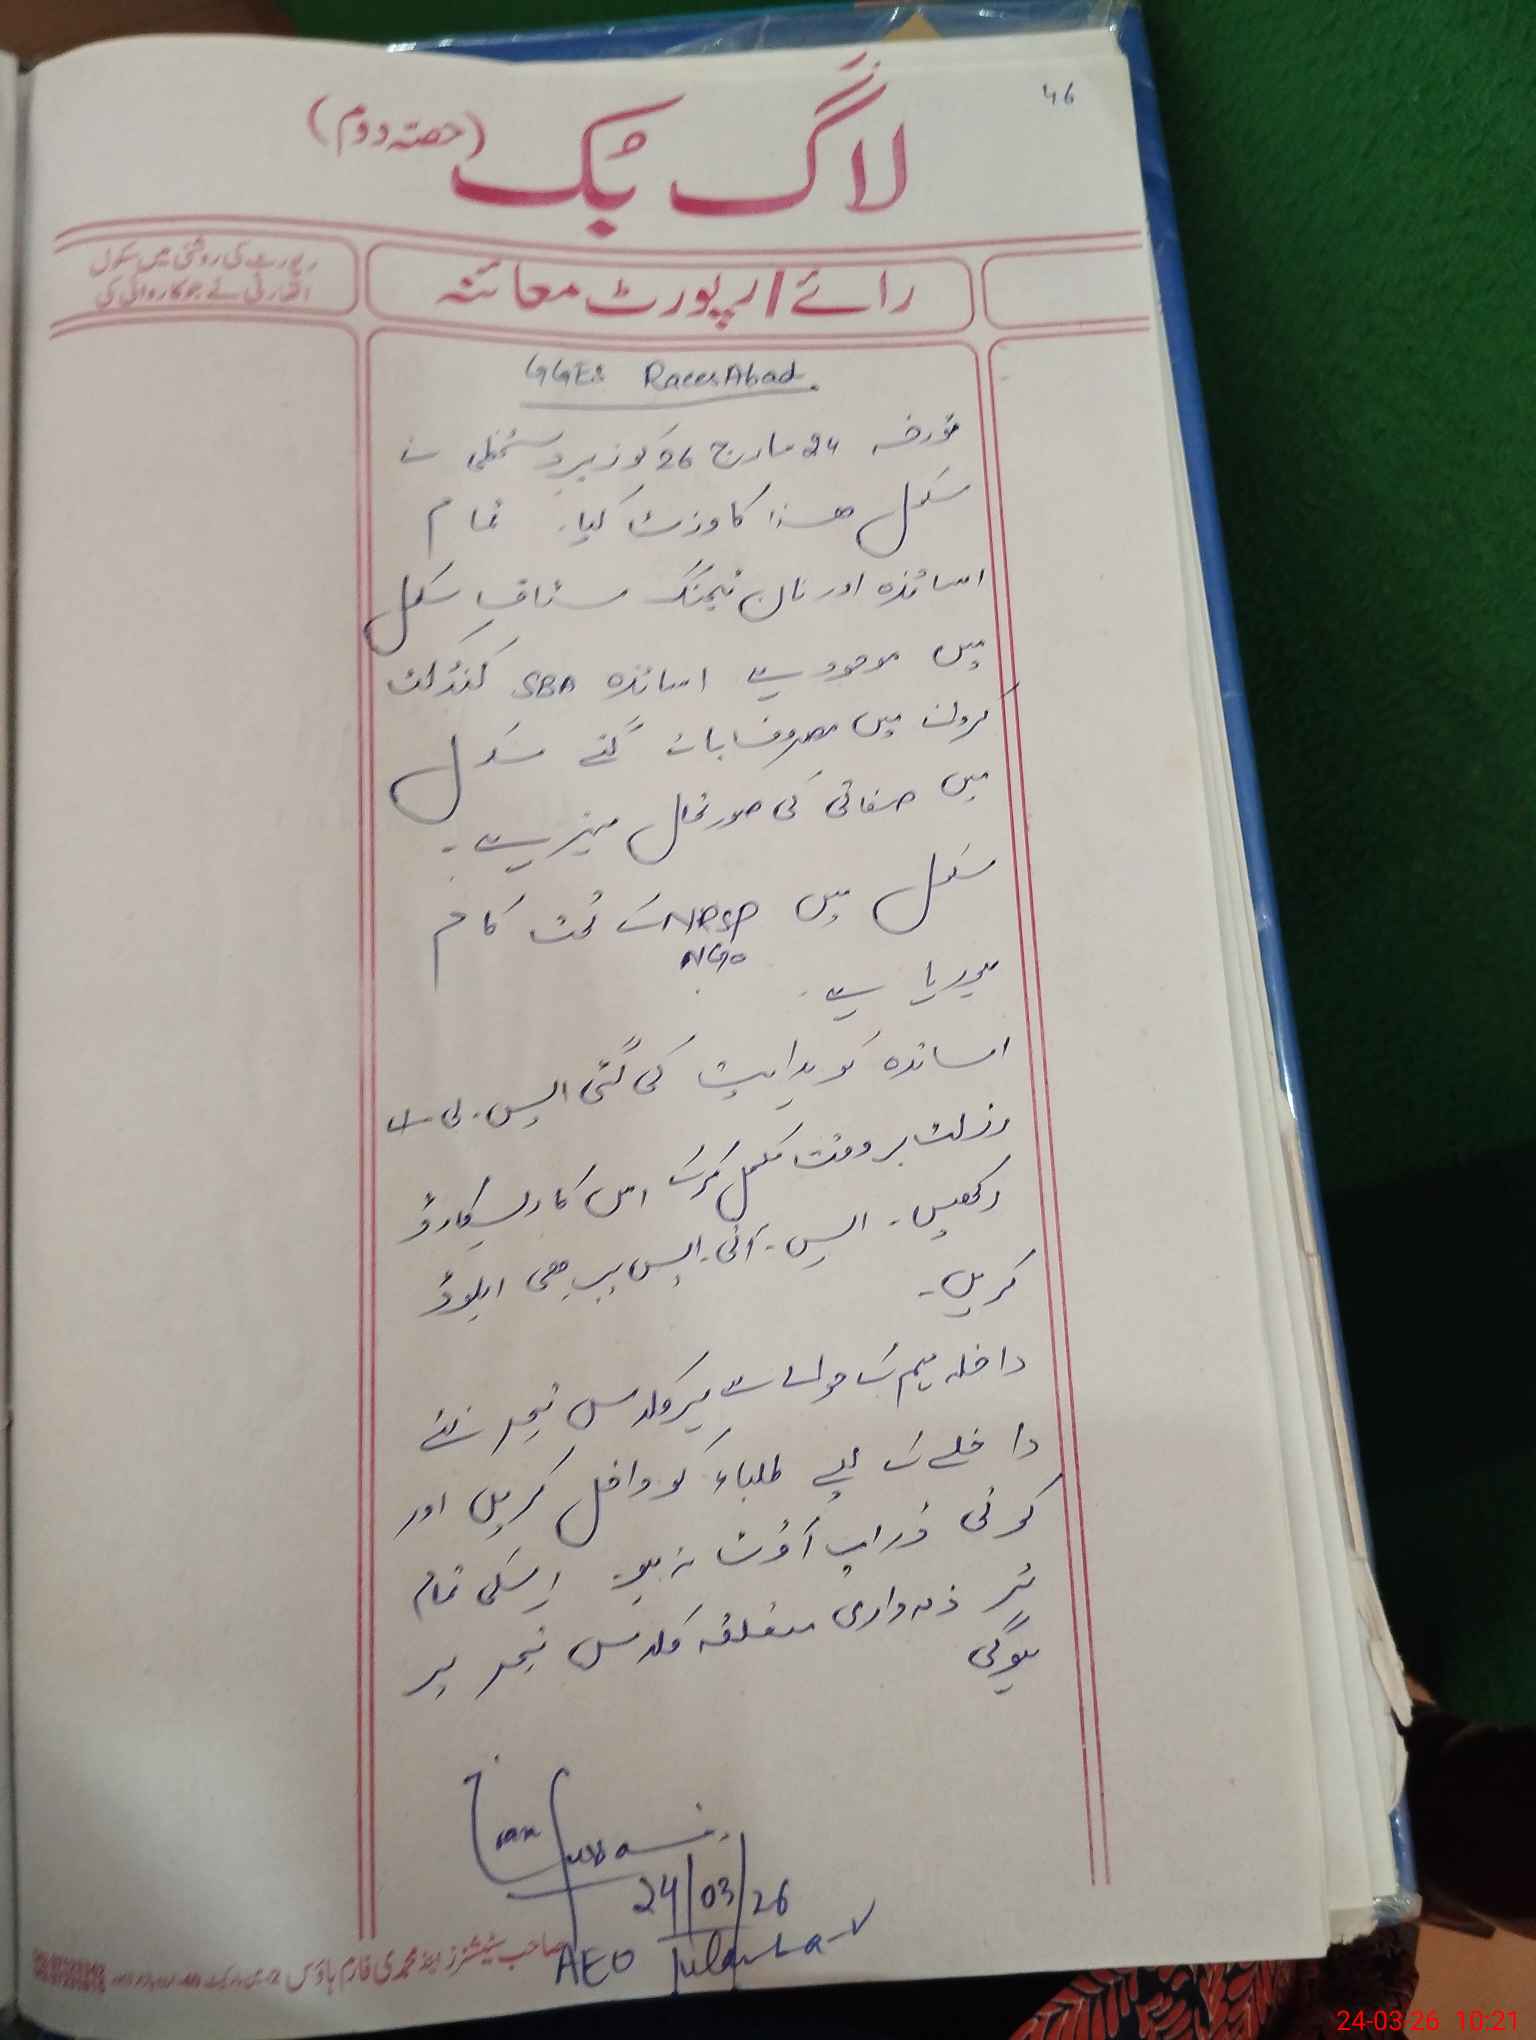 46
لاگ بک (حصہ دوم)
رائے / رپورٹ معائنہ
رپورٹ کی روشنی میں سکول
اتھارٹی نے جو کاروائی کی
GGES RaeesAbad.
مورخہ 24 مارچ 26 کو زیر دستخطی نے
سکول ھذا کا وزٹ کیا۔ تمام
اساتذہ اور نان ٹیچنگ سٹاف سکول
میں موجود ہے اساتذہ SBA کنڈکٹ
کرونے میں مصروف پائے گئے سکول
میں صفائی کی صورتحال بہتر ہے۔
سکول میں NRSP کے تحت کام
NGO
ہورہا ہے۔
اساتذہ کو ہدایت کی گئی ایس۔بی۔اے
رزلٹ بروقت مکمل کرکے اس کا ریکارڈ
رکھیں۔ ایس۔آئی۔ایس پر بھی اپلوڈ
کریں۔
داخلہ مہم کے حوالے سے ہر کلاس ٹیچر نئے
داخلے کے لیے طلباء کو داخل کریں اور
کوئی ڈراپ آؤٹ نہ ہو۔ اسکی تمام
تر ذمہ داری متعلقہ کلاس ٹیچر پر
ہوگی
24/03/26
AEO
24-03-26 10:21